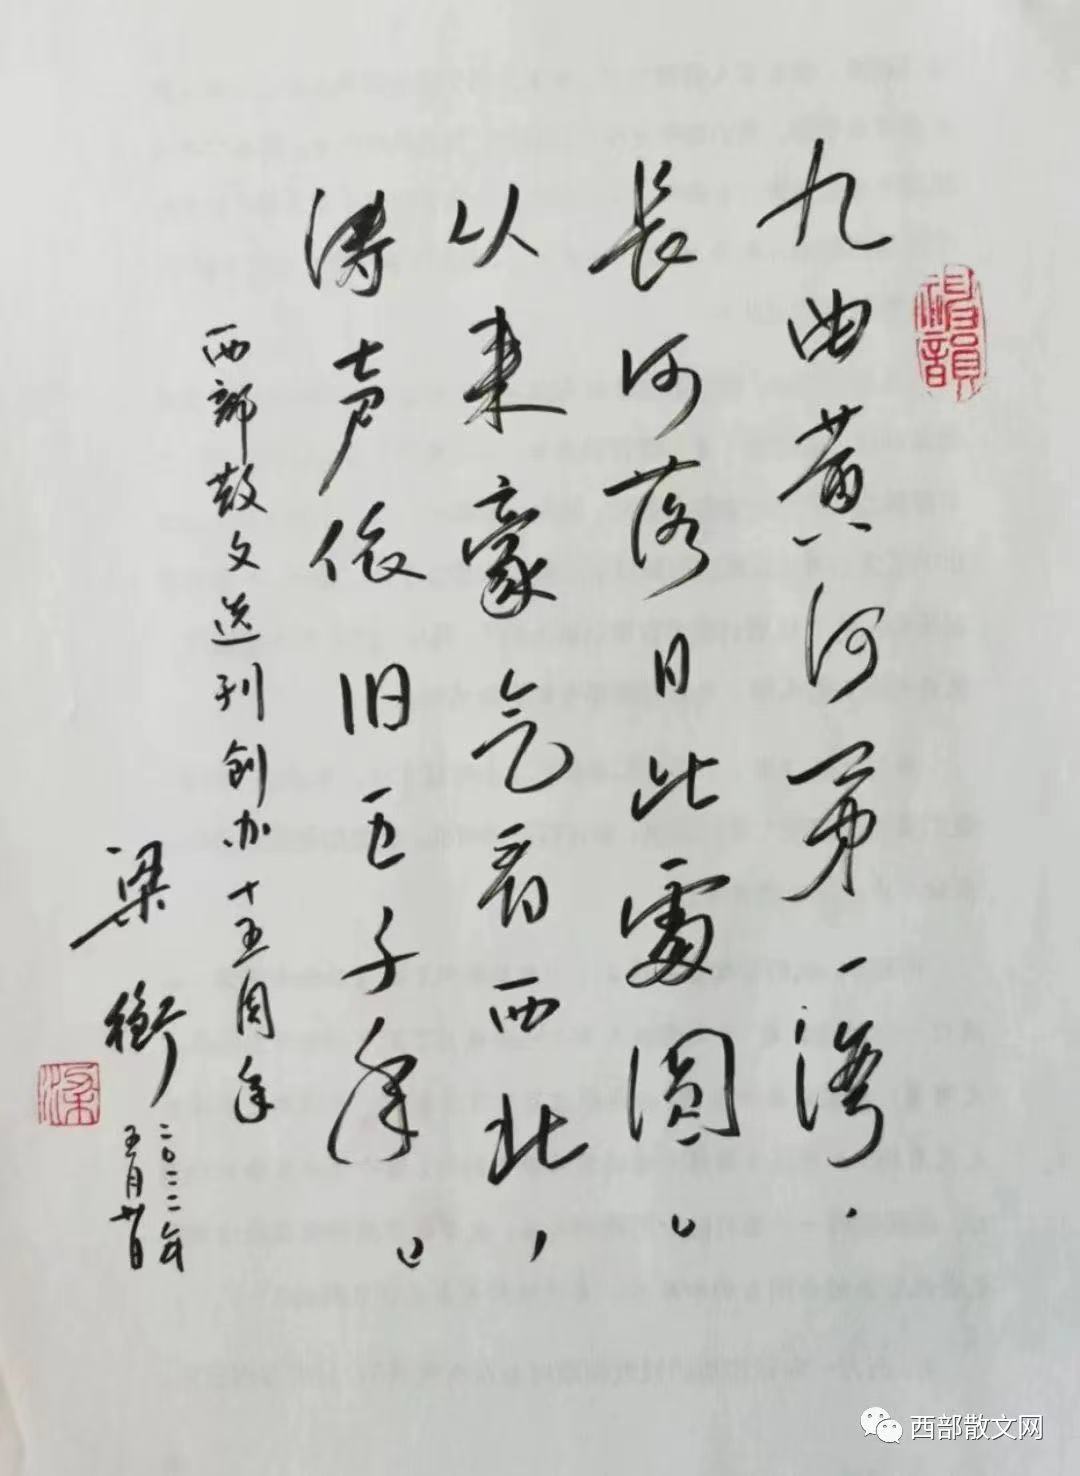 九曲黄河第一湾,
长河落日此处圆。
从来豪气看西北,
涛声依旧五千年。
西部散文选刊创办十五周年
梁衡
二〇二二年
五月廿日
西部散文网